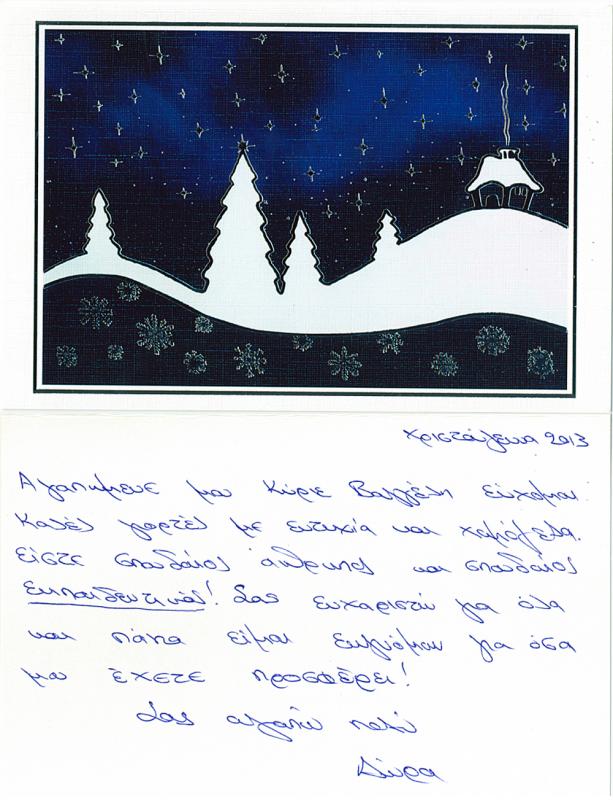 Χριστούγεννα 2013
Αγαπημένε μου Κύριε Βαγγέλη εύχομαι
Καλές γιορτές με ευτυχία και χαμόγελα.
είστε σπουδαίος άνθρωπος και σπουδαίος
Εκπαιδευτικός! Σας ευχαριστώ για όλα
και πάντα είμαι ευγνώμων για όσα
μου έχετε προσφέρει!
Σας αγαπώ πολύ